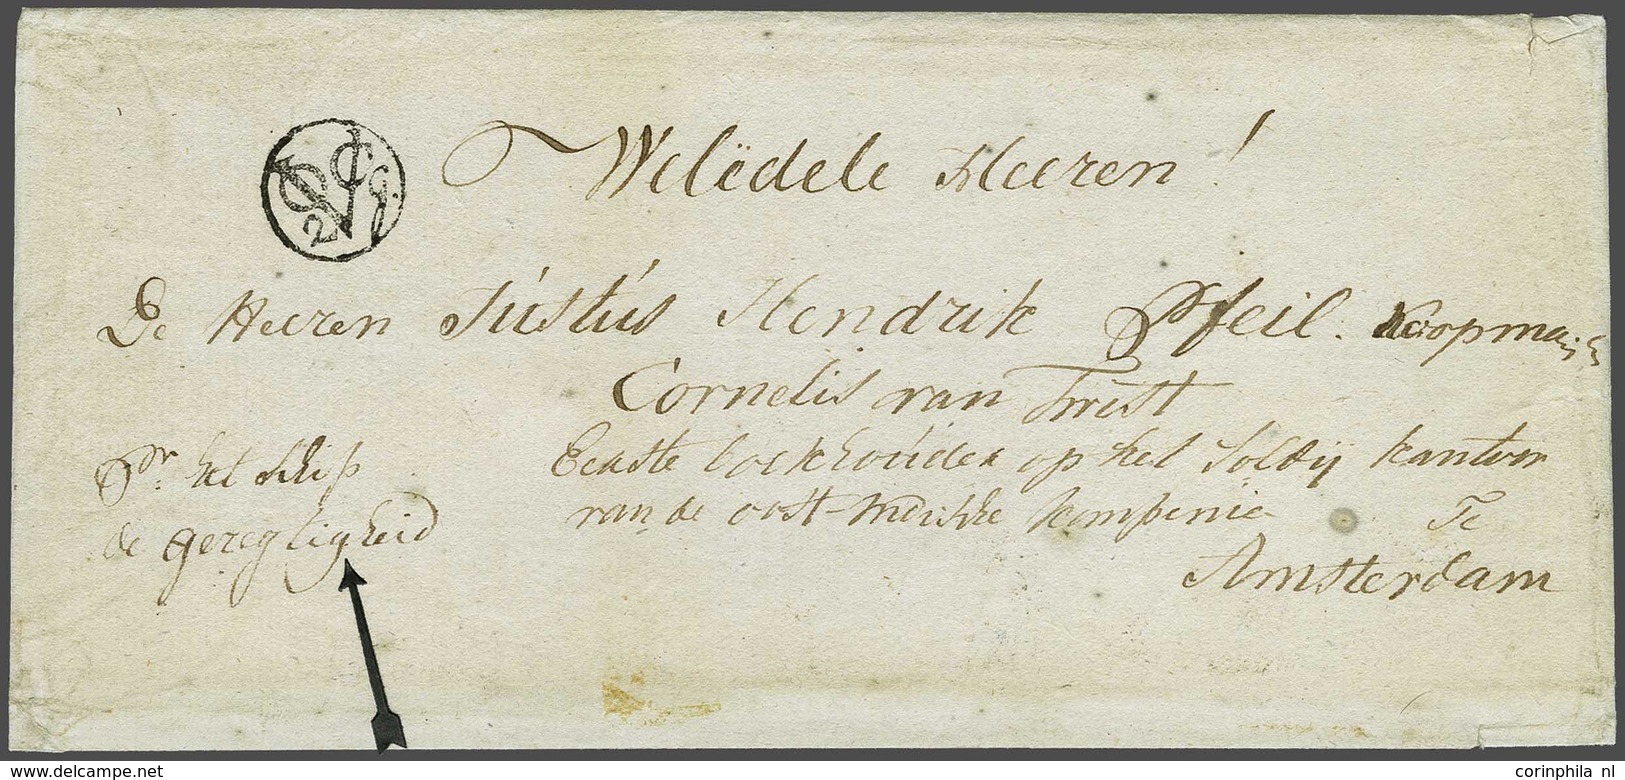 Welëdele Heeren!
De Heeren Justus Hendrik Pfeil. Koopman
Cornelis van Twist
Eerste boekhouder op het Soldij kantoor
van de oost-indische kompenie Te
Amsterdam
Pr. het schip
de geregtigheid
VOC
2 G
corinphila nl